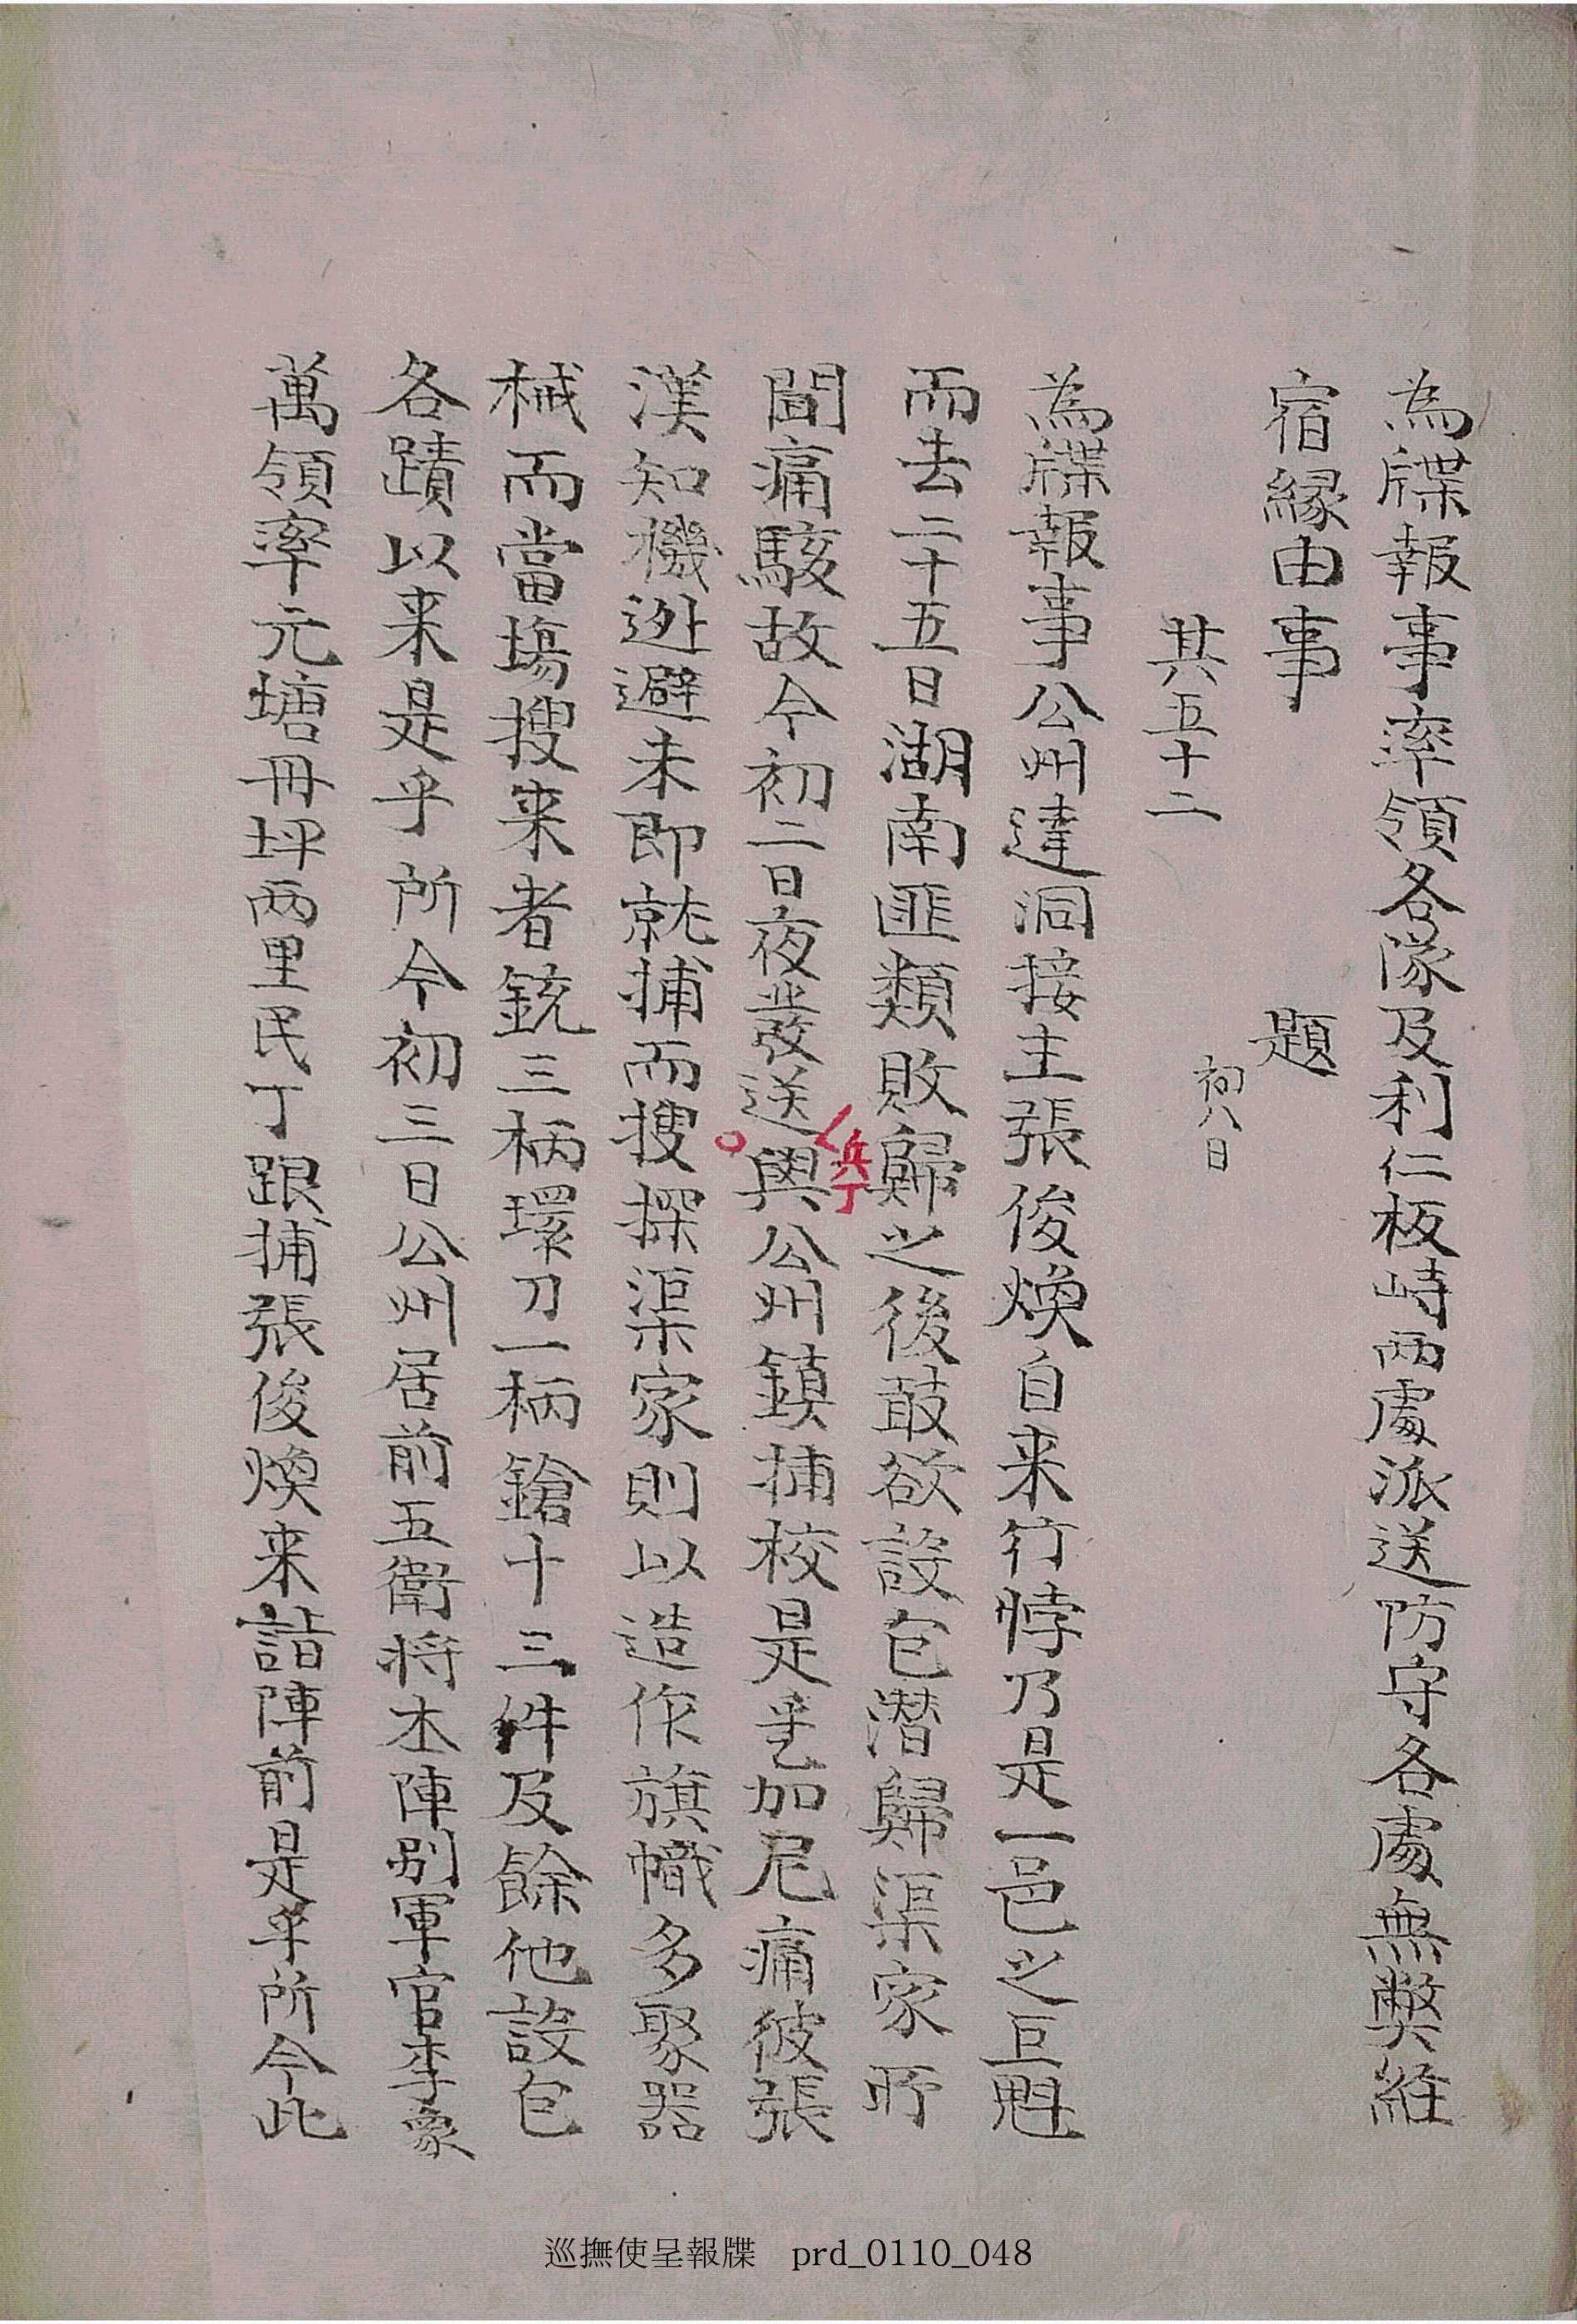 為牒報事率領各隊及利仁板峙两處派送防守各處無弊經
宿緣由事　題
初八日
其五十二
為牒報事公州達洞接主張俊煥自来行悖乃是一邑之巨魁
而去二十五日湖南匪類敗歸之後敢欲設包潜歸渠家所
聞痛駭故今初二日夜發送兵丁與公州鎮捕校是乎乙加尼痛彼張
漢知機迯避未即就捕而搜探渠家則以造作旗幟多聚器
械而當塲搜来者銃三柄環刀一柄鎗十三件及餘他設包
各蹟以来是乎所今初三日公州居前五衛将本陣別軍官李象
萬領率元塘冊坪两里民丁跟捕張俊煥来詣陣前是乎所今此
巡撫使呈報牒　prd_0110_048